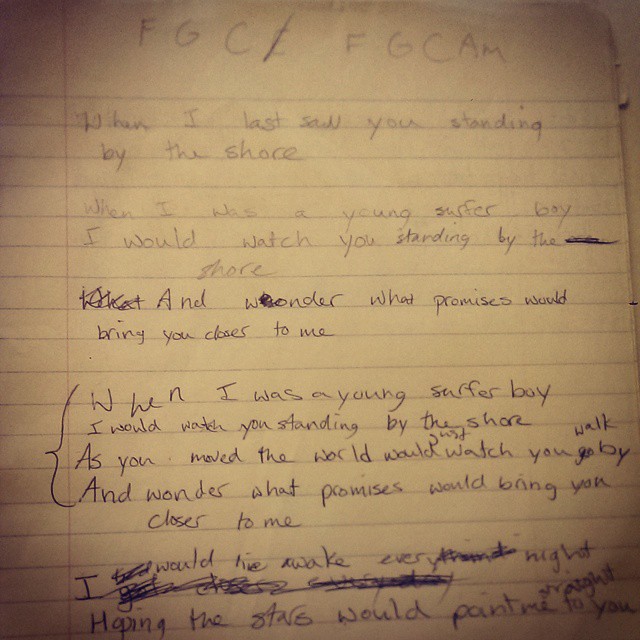 F G C F G C Am
When I last saw you standing
by the shore
When I was a young surfer boy
I would watch you standing by the
shore
And wonder what promises would
bring you closer to me
When I was a young surfer boy
I would watch you standing by the shore
As you moved the world would just watch you walk by
And wonder what promises would bring you
closer to me
I would lie awake every night
Hoping the stars would point me straight to you